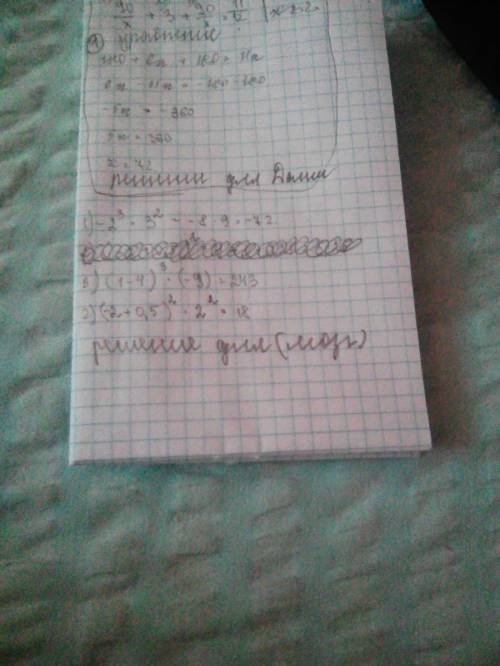 90/x + 3 + 90/x = 11/2
1 уравнение
180 + 6x + 180 = 11x
6x - 11x = -180-180
-5x = -360
5x = 360
x = 72
решении для Даши
1) -2³ · 3² = -8·9 = -72
3) (1-4)³ · (-9) = 243
2) (-2+0,5)² · 2² = 18
решение для (мозг)